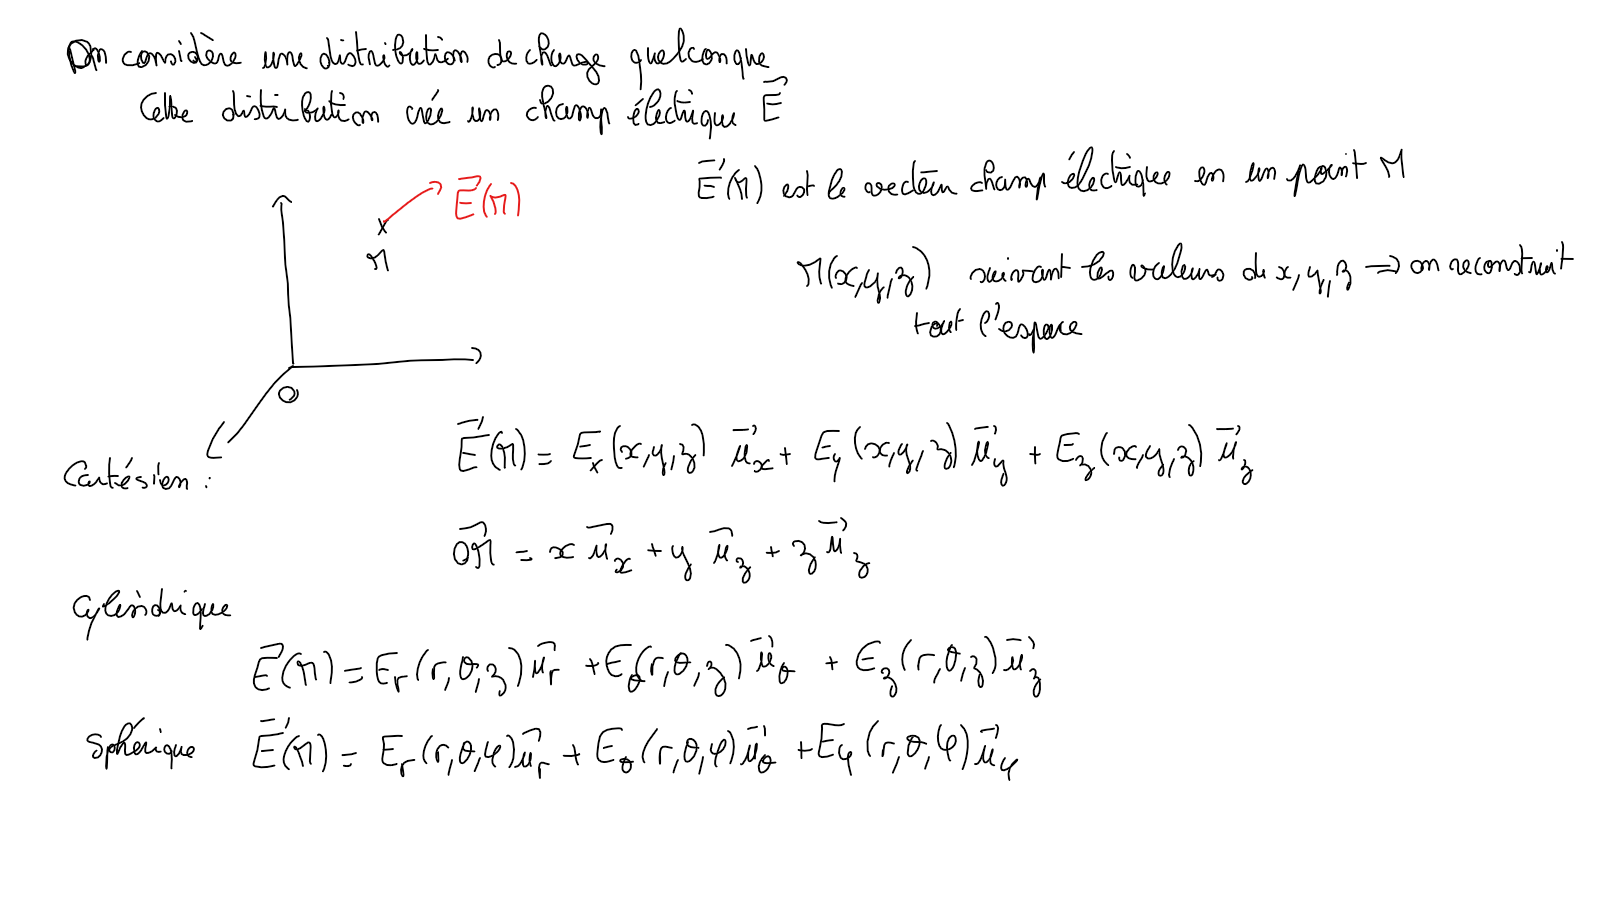 On considère une distribution de charge quelconque
Cette distribution crée un champ électrique E⃗
E⃗(M) est le vecteur champ électrique en un point M
E⃗(M)
M
M(x,y,z) suivant les valeurs de x, y, z ⇒ on reconstruit
tout l'espace
O
Cartésien : E⃗(M) = Eₓ(x,y,z) u⃗_x + E_y(x,y,z) u⃗_y + E_z(x,y,z) u⃗_z
OM⃗ = x u⃗_x + y u⃗_z + z u⃗_z
Cylindrique
E⃗(M) = E_r(r,θ,z) u⃗_r + E_θ(r,θ,z) u⃗_θ + E_z(r,θ,z) u⃗_z
Sphérique E⃗(M) = E_r(r,θ,φ) u⃗_r + E_θ(r,θ,φ) u⃗_θ + E_φ(r,θ,φ) u⃗_φ